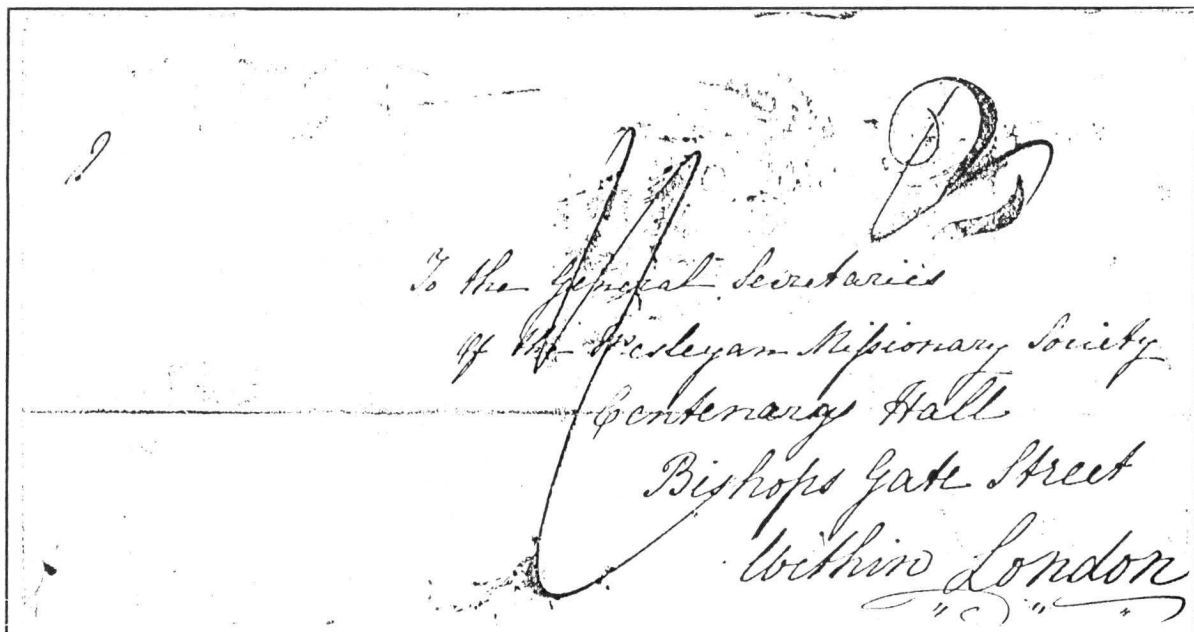 To the General Secretaries
of the Wesleyan Missionary Society
Centenary Hall
Bishops Gate Street
Within London